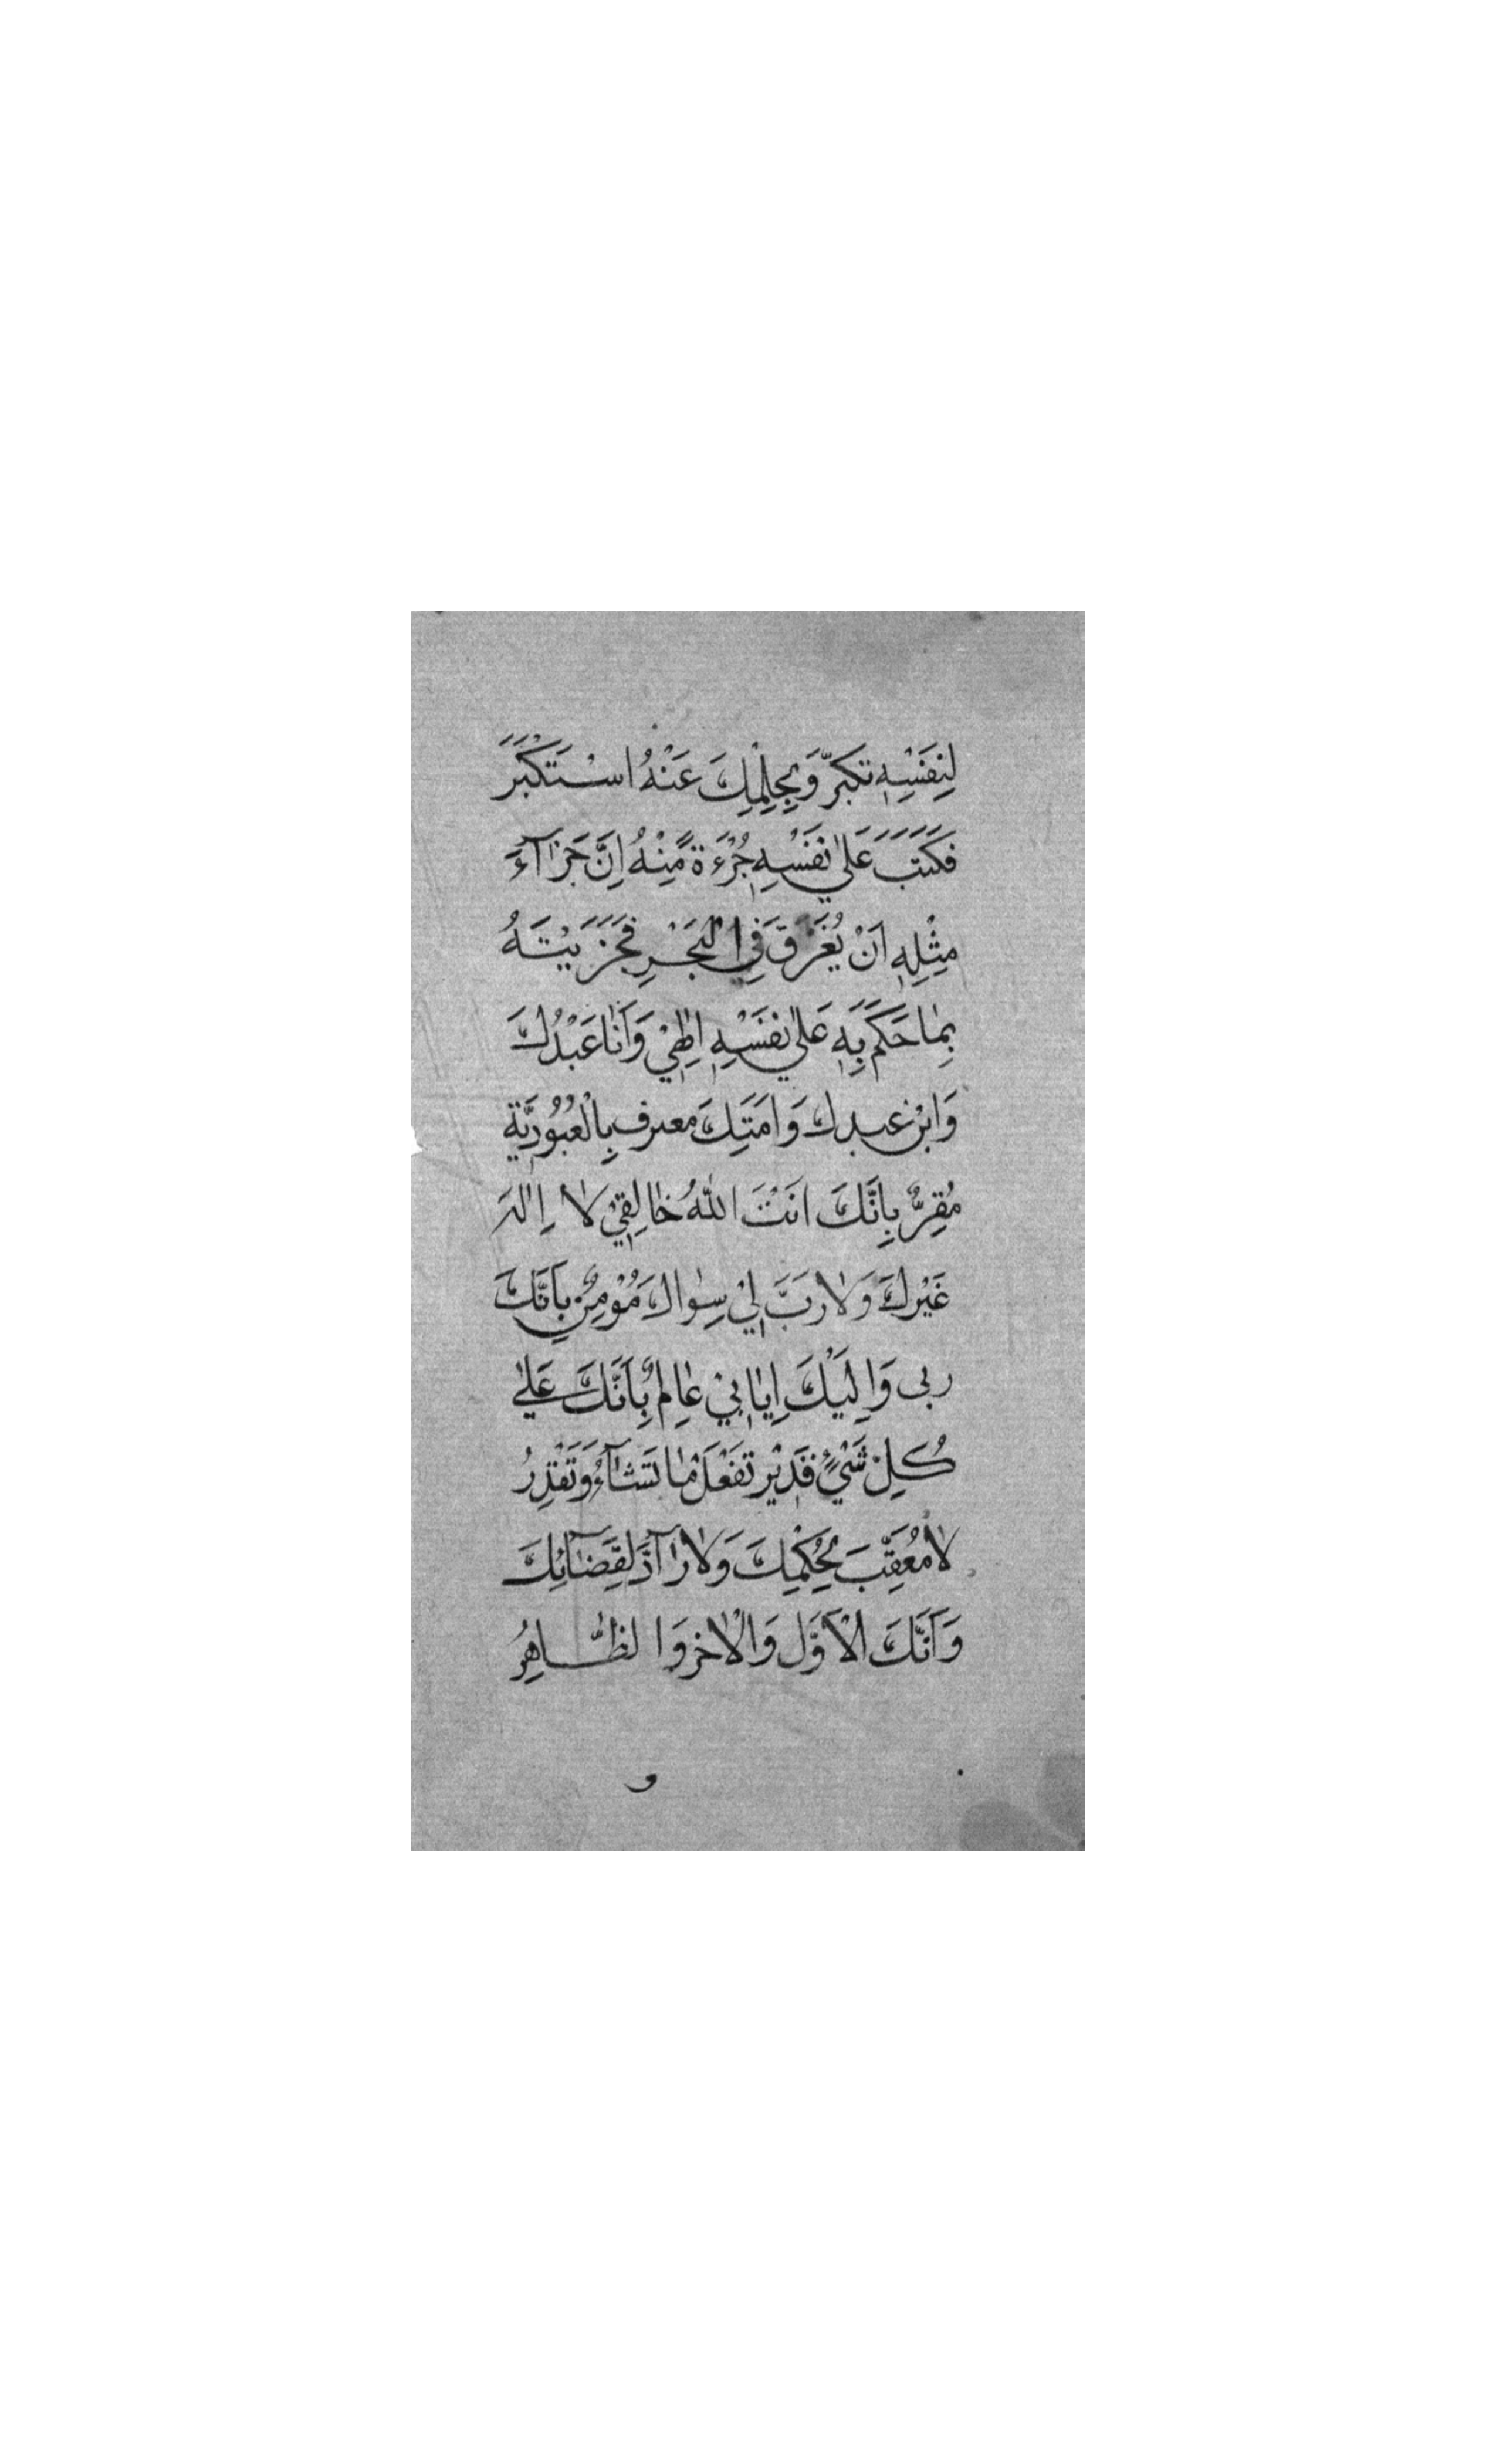 لِنَفْسِهِ تَكَبَّرَ وَبِحِلْمِكَ عَنْهُ اسْتَكْبَرَ
فَكَتَبَ عَلٰي نَفْسِهِ جُرْءَةً مِنْهُ اِنَّ جَزَآءَ
مِثْلِهِ اَنْ يُغْرَقَ فِي الْبَحْرِ فَجَزَيْتَهُ
بِمٰا حَكَمَ بِهِ عَلٰي نَفْسِهِ اِلٰهِيْ وَاَنَا عَبْدُكَ
وَابْن عبدك وَاَمَتِكَ معترف بِالْعُبُودِيَّةِ
مُقِرٌّ بِاَنَّكَ اَنْتَ اللّٰهُ خٰالِقِيْ لٰا اِلٰهَ
غَيْرُكَ وَلٰا رَبَّ لِيْ سِوٰاكَ مُؤْمِنٌ بِاَنَّكَ
ربى وَاِلَيْكَ اِيٰابِيْ عٰالِمٌ بِاَنَّكَ عَلٰي
كُلِّ شَيْءٍ قَدِيْر تَفْعَلُ مٰا تَشٰآءُ وَتَقْدِرُ
لٰا مُعَقِّبَ لِحُكْمِكَ وَلٰا رٰآدَّ لِقَضٰآئِكَ
وَاَنَّكَ الْاَوَّل وَالْاٰخر وَالظّٰاهِرُ
و